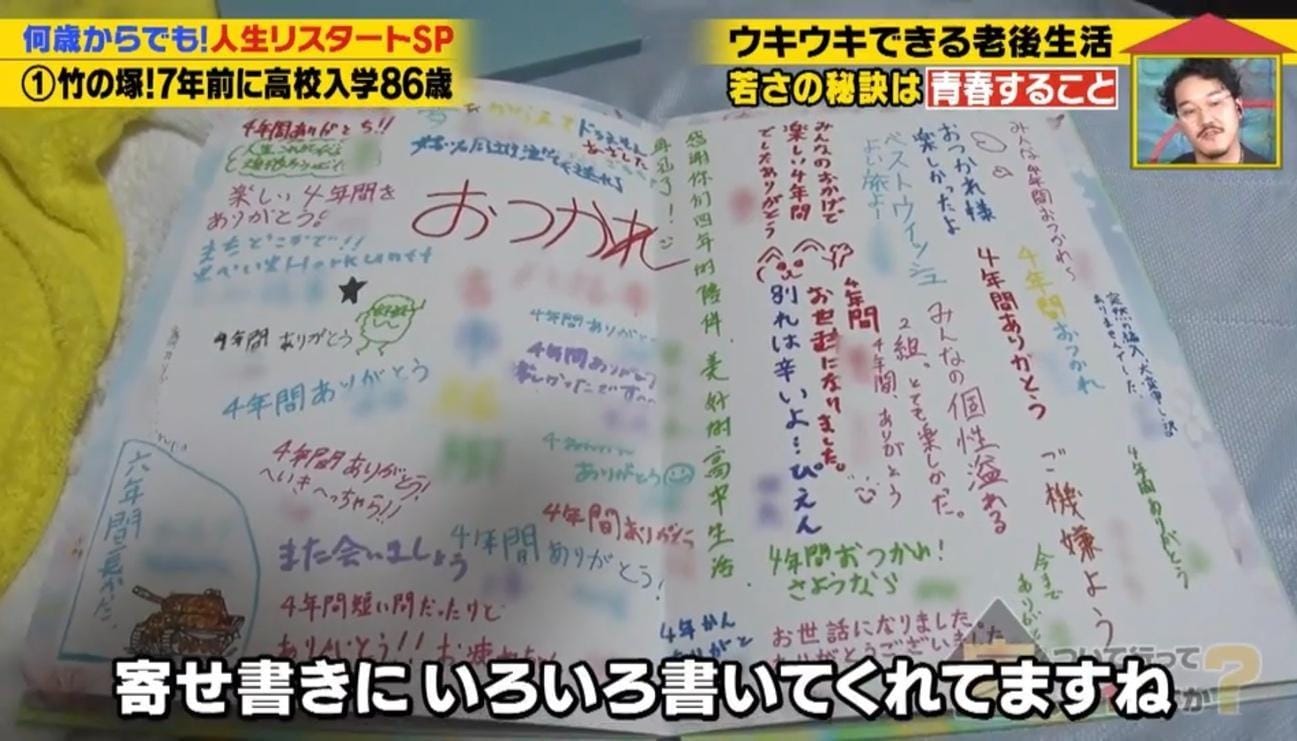 何歳からでも!人生リスタートSP
①竹の塚!7年前に高校入学86歳
ウキウキできる老後生活
若さの秘訣は 青春すること
4年間ありがとう!!
楽しい4年間を
ありがとう!
おつかれ
4年間ありがとう
4年間ありがとう
4年間ありがとう
4年間ありがとう!
へいきへっちゃら!!
ありがとう
4年間ありがとう
また会いましょう
4年間ありがとう!
六年間長かった。
4年間短い間だったけど
ありがとう!!
感谢你们四年的陪伴.美好的高中生活.
再见了!
みんなのおかげで
楽しい4年間
でしたありがとう
ベストウイッシュ
よい旅よー
おつかれ様
楽しかったよ
みんな4年間おつかれ〜
4年間おつかれ
4年間ありがとう
突然の編入、大変申し訳
ありませんでした。
4年間
お世話になりました。
別れは辛いよ…ぴえん
みんなの個性溢れる
2組。とても楽しかった。
4年間、ありがとう
ご機嫌よう
4年間ありがとう
今まで
ありがとう
4年間おつかれ!
さようなら
4年かん
ありがと
お世話になりました。
ありがとうございました
寄せ書きに いろいろ書いてくれてますね
ついて行って
か?